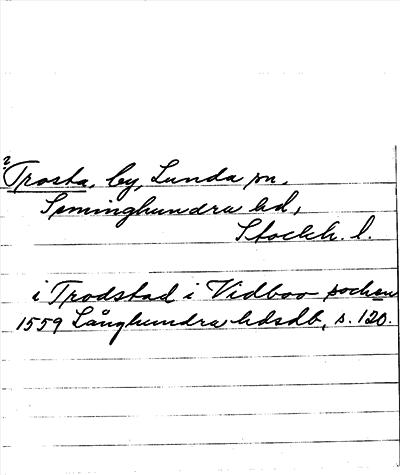 ?
Trosta, by, Lunda sn,
Seminghundra hd,
Stockh. l.
i Trodstad i Vidboo sochen
1559 Långhundra hdsdb, s. 120.